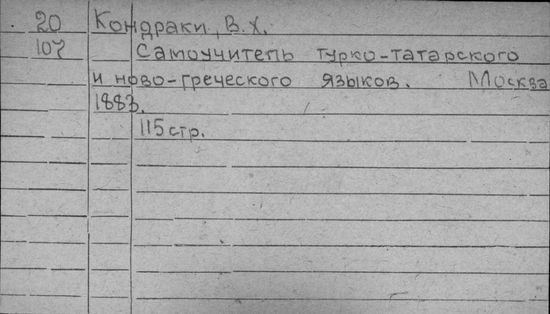 20 Кондраки, В. Х.
107 Самоучитель турко-татарского
и ново-греческого языков. Москва
1883.
115 стр.